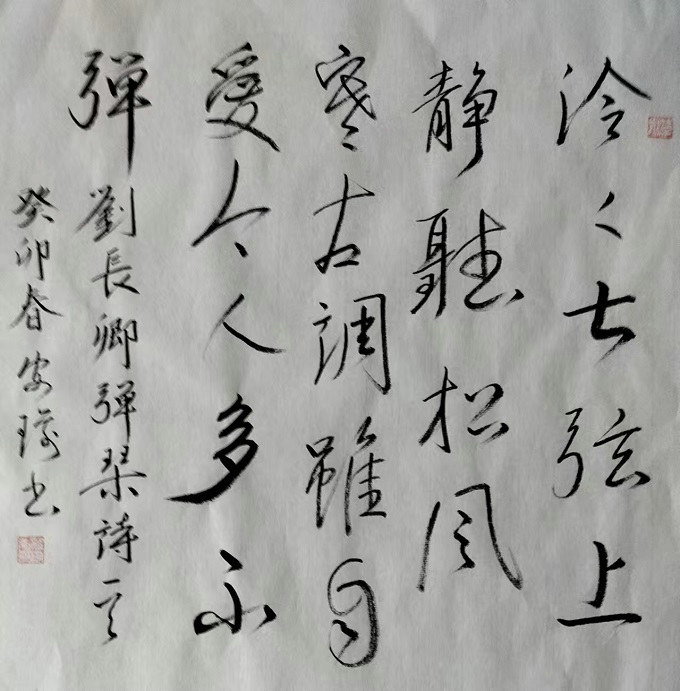 泠々七弦上
静聽松風
寒古調雖自
愛今人多不
弹 劉長卿弹琴詩一首
癸卯春安书